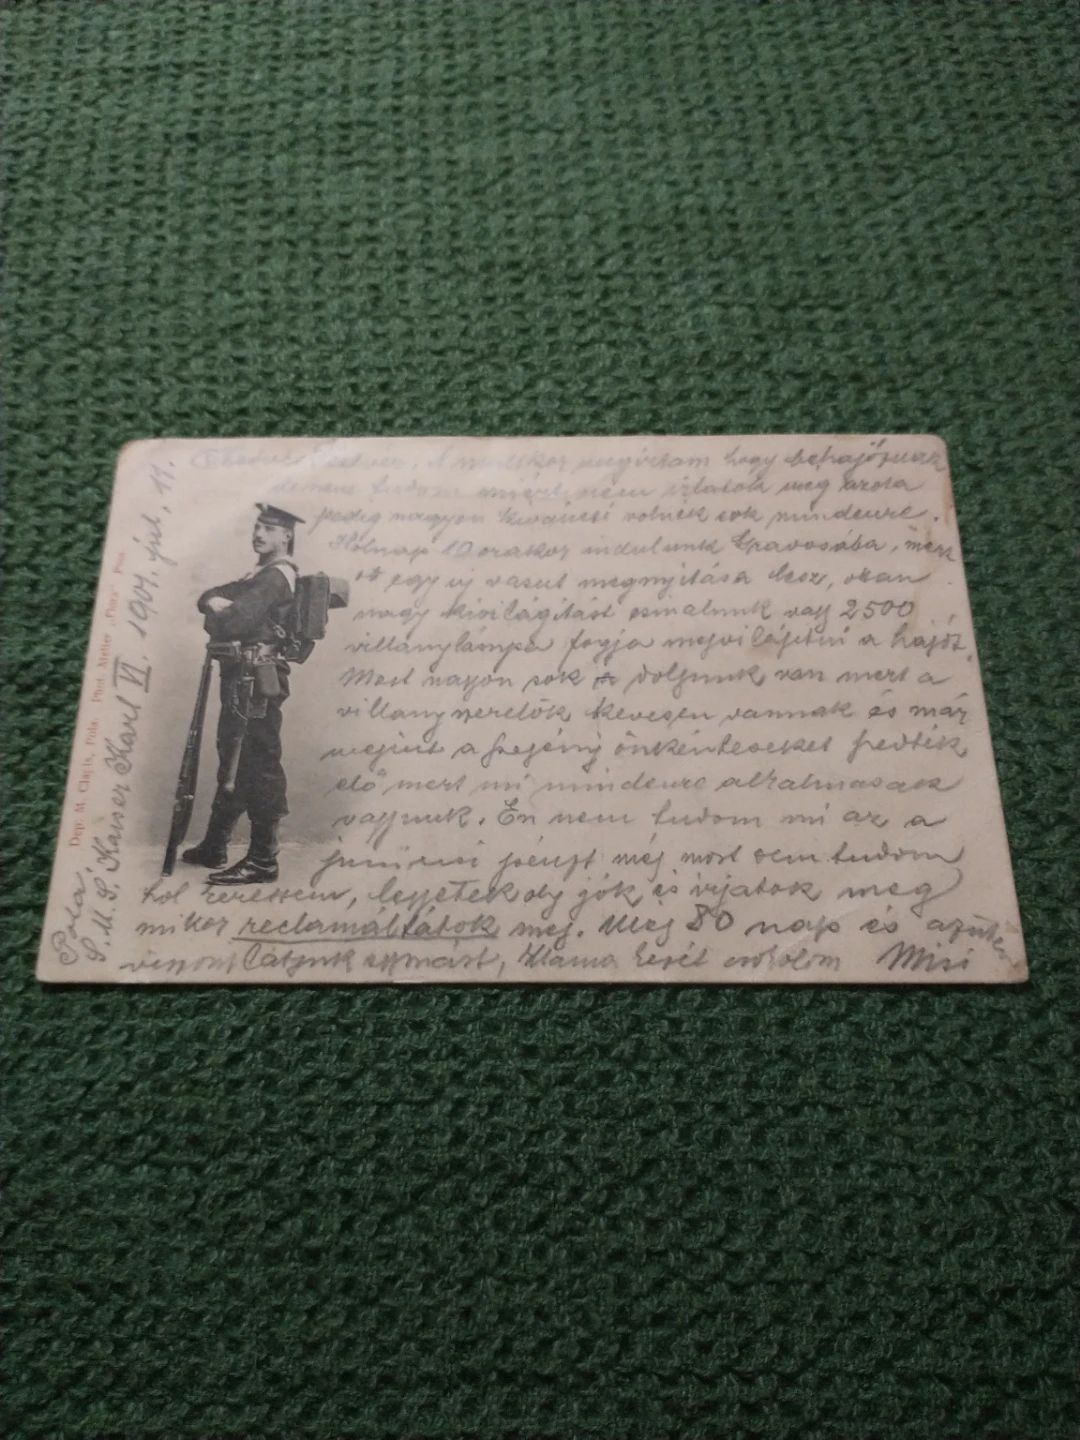 multkor megírtam hogy behajózunk
de nem tudom miért nem írtatok meg azota
pedig nagyon kiváncsi volnék sok mindenre.
Holnap 10 orakor indulunk Gravosába, mert
ott egy uj vasut megnyitása lesz, okan
nagy kivilágitást csinalunk vagy 2500
villanylámpa fogja megvilágitni a hajót.
Most nagyon sok dolgunk van mert a
villanyszerelök kevesen vannak és már
megint a szegény önkénteseket szedték
elö mert mi mindenre alkalmasak
vagyunk. Én nem tudom mi az a
juniusi pénzt még most sem tudom
hol keressem, legyetek oly jók és irjatok meg
mikor reclamáltátok meg. Még 80 nap és azután
viszont látjuk egymást, Mama kezét csókolom Misi
Pola
S.M.S. Kaiser Karl VI. 1901. jul. 11.
Dep. M. Clapis, Pola. Phot. Atelier „Flora" Pola